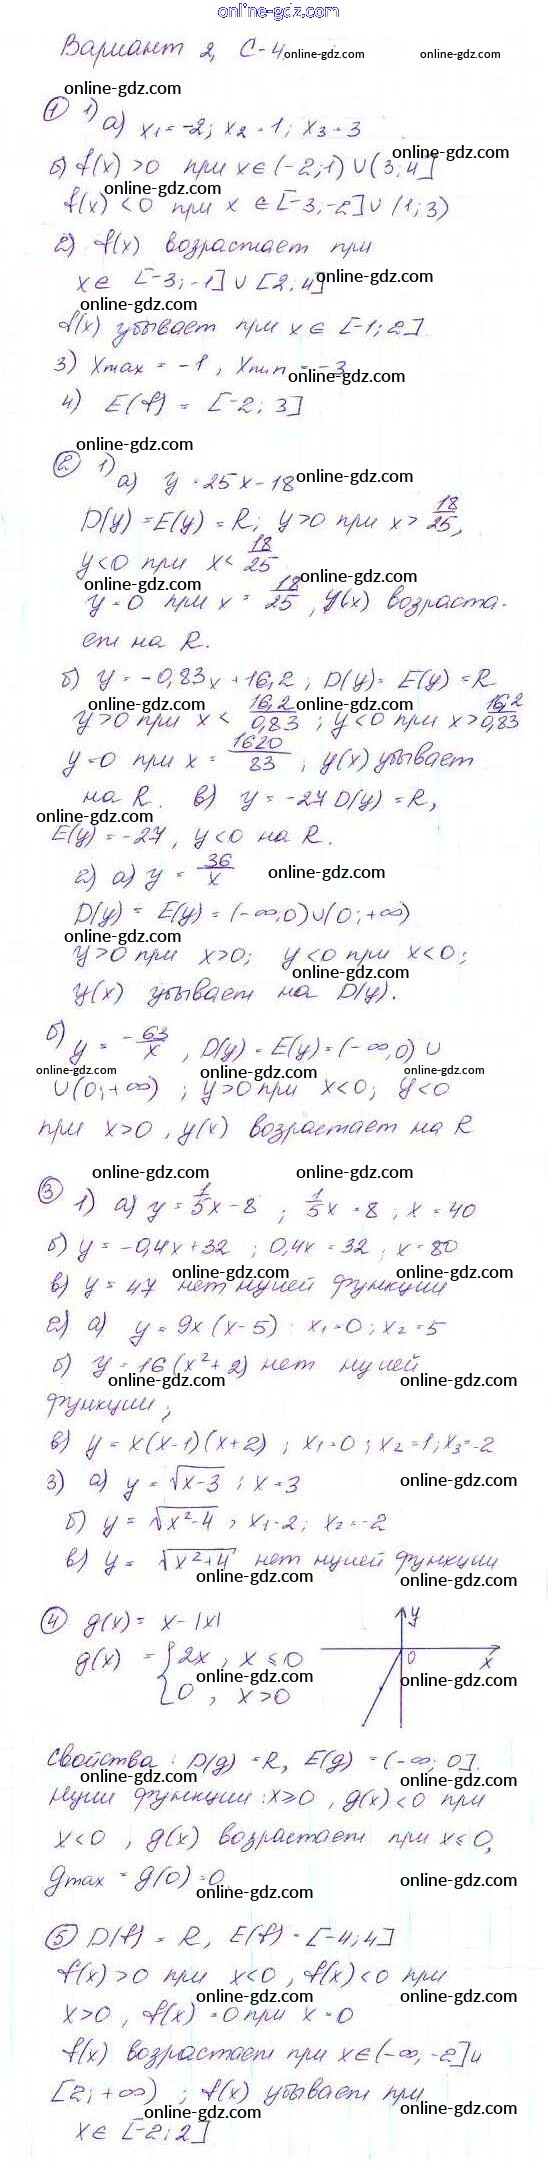 online-gdz.com
Вариант 2, С-4
online-gdz.com online-gdz.com
online-gdz.com
① 1) а) x₁ = -2; x₂ = 1; x₃ = 3
б) f(x) > 0 при x ∈ (-2; 1) ∪ (3; 4]
online-gdz.com
f(x) < 0 при x ∈ [-3; -2] ∪ (1; 3)
2) f(x) возрастает при
x ∈ [-3; -1] ∪ [2; 4]
online-gdz.com
online-gdz.com
f(x) убывает при x ∈ [-1; 2]
3) Xmax = -1, Xmin = -3
online-gdz.com
4) E(f) = [-2; 3]
online-gdz.com
② 1) а) y = 25x - 18
online-gdz.com
D(y) = E(y) = R; y > 0 при x > 18/25,
y < 0 при x < 18/25
online-gdz.com online-gdz.com
y = 0 при x = 18/25, y(x) возраста-
ет на R.
б) y = -0,83x + 16,2; D(y) = E(y) = R
online-gdz.com online-gdz.com
y > 0 при x < 16,2/0,83; y < 0 при x > 16,2/0,83
y = 0 при x = 1620/83; y(x) убывает
на R. в) y = -27 D(y) = R,
online-gdz.com
E(y) = -27, y < 0 на R.
2) а) y = 36/x
online-gdz.com
D(y) = E(y) = (-∞; 0) ∪ (0; +∞)
online-gdz.com
y > 0 при x > 0; y < 0 при x < 0;
online-gdz.com
y(x) убывает на D(y).
б) y = -63/x, D(y) = E(y) = (-∞; 0) ∪
online-gdz.com online-gdz.com online-gdz.com
∪ (0; +∞); y > 0 при x < 0; y < 0
при x > 0, y(x) возрастает на R
online-gdz.com online-gdz.com
③ 1) а) y = 1/5x - 8; 1/5x = 8; x = 40
б) y = -0,4x + 32; 0,4x = 32; x = 80
online-gdz.com online-gdz.com
в) y = 47 нет нулей функции
2) а) y = 9x(x-5) x₁ = 0; x₂ = 5
б) y = 16(x² + 2) нет нулей
online-gdz.com online-gdz.com
функции;
в) y = x(x-1)(x+2); x₁ = 0; x₂ = 1; x₃ = -2
3) а) y = √(x-3); x = 3
online-gdz.com
б) y = √(x²-4), x₁ = 2; x₂ = -2
в) y = √(x²+4) нет нулей функции
online-gdz.com online-gdz.com
④ g(x) = x - |x| y
g(x) = {2x, x ≤ 0 0 x
online-gdz.com online-gdz.com
0, x > 0
Свойства: D(g) = R, E(g) = (-∞; 0].
online-gdz.com online-gdz.com
Нули функции: x ≥ 0, g(x) < 0 при
x < 0, g(x) возрастает при x ≤ 0,
gmax = g(0) = 0
online-gdz.com online-gdz.com
⑤ D(f) = R, E(f) = [-4; 4]
f(x) > 0 при x < 0, f(x) < 0 при
online-gdz.com online-gdz.com
x > 0, f(x) = 0 при x = 0
f(x) возрастает при x ∈ (-∞; -2] и
[2; +∞); f(x) убывает при
online-gdz.com online-gdz.com
x ∈ [-2; 2]